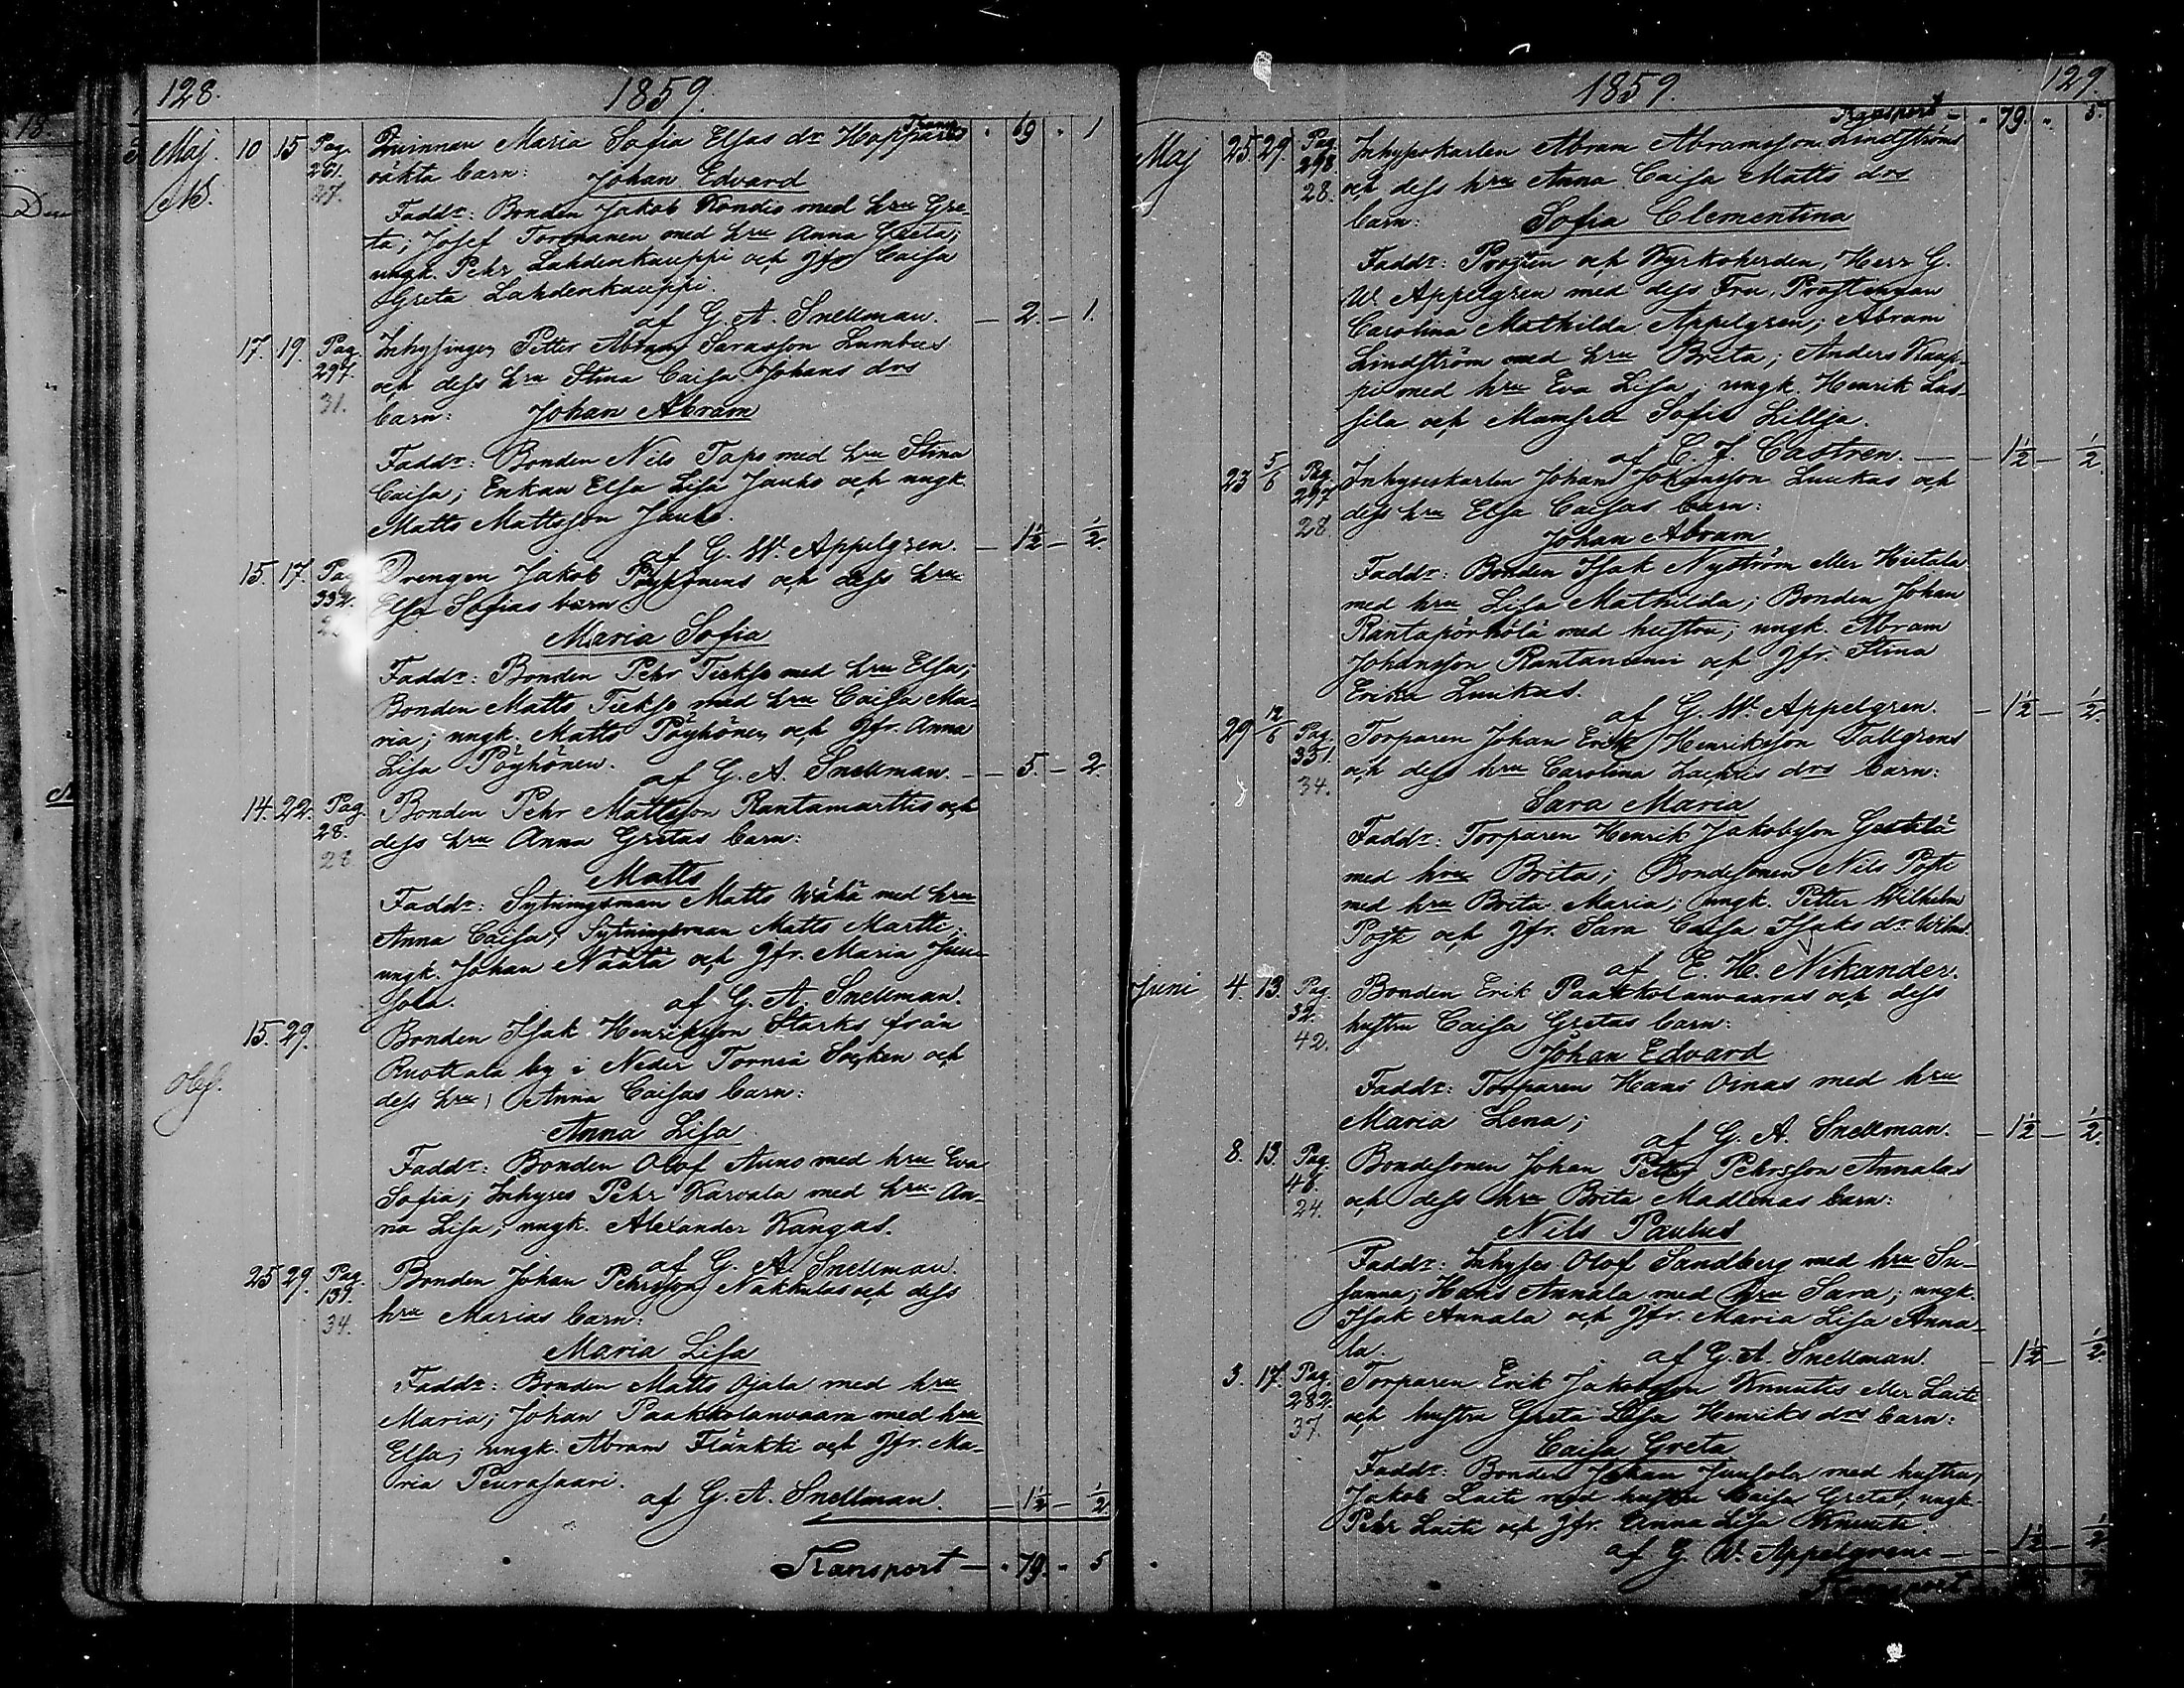 128.
1859.
Transp. " 69 " 1
Maj. 10 15 Pag. 261. 27. Qvinnan Maria Sofia Elsas dr Happas
oäkta barn: Johan Edvard
Faddr: Bonden Jakob Kondis med hru Gre-
ta; Josef Tornanen med hru Anna Greta;
ungk. Pehr Lahdenkauppi och Jfr Caisa
Greta Lahdenkauppi.
af G. A. Snellman. — 2. — 1.
17. 19. Pag. 297. 31. Inhysingen Petter Abram Larsson Lumbus
och dess hru Stina Caisa Johans drs
barn: Johan Abram
Faddr: Bonden Nils Tapo med hru Stina
Caisa; Enkan Elsa Lisa Jauho och ungk.
Matts Mattsson Jauho.
af G. W. Appelgren. — 1½ — ½.
15. 17. Pag. 332. Drengen Jakob Pöyhönens och dess hru
Elsa Sofias barn:
Maria Sofia
Faddr: Bonden Pehr Tiekso med hru Elsa;
Bonden Matts Tiekso med hru Caisa Ma-
ria; ungk. Matts Pöyhönen och Jfr. Anna
Lisa Pöyhönen.
af G. A. Snellman. — 5. — 2.
14. 22. Pag. 28. 28. Bonden Pehr Mattsson Rantamarttis och
dess hru Anna Gretas barn:
Matts
Faddr: Sytningsman Matts Wähä med hru
Anna Caisa; Sytningsman Matts Martti;
ungk. Johan Näätä och Jfr. Maria Juu-
sola.
af G. A. Snellman.
15. 29. Bonden Isak Henriksson Starks från
Ruottala by i Neder Torneå Socken och
dess hru Anna Caisas barn:
Anna Lisa
Faddr: Bonden Olof Auno med hru Eva
Sofia; Inhyses Pehr Karvala med hru An-
na Lisa; ungk. Alexander Kangas.
af G. A. Snellman.
25 29. Pag. 139. 34. Bonden Johan Pehrsson Nakkulas och dess
hru Marias barn:
Maria Lisa
Faddr: Bonden Matts Ojala med hru
Maria; Johan Paakkolanvaara med hru
Elsa; ungk. Abram Flänkki och Jfr. Ma-
ria Peurasaari.
af G. A. Snellman. — 1½ — ½
Transport — " 79. " 5
1859.
129.
Transport — " 79. " 5.
Maj 25. 29. Pag. 298. 28. Inhyseskarlen Abram Abramsson Lindströms
och dess hru Anna Caisa Matts drs
barn: Sofia Clementina
Faddr: Prosten och Kyrkoherden, Herr G.
W. Appelgren med dess Fru, Prostinnan
Carolina Mathilda Appelgren; Abram
Lindström med hru Brita; Anders Kaup-
pi med hru Eva Lisa; ungk. Henrik Las-
sila och Mamsell Sofia Lillja.
af C. J. Castren. — 1½ — ½.
23 5/6 Pag. 297 28. Inhyseskarlen Johan Johansson Luukas och
dess hru Elsa Caisas barn:
Johan Abram
Faddr: Bonden Isak Nyström eller Hietala
med hru Lisa Mathilda; Bonden Johan
Rantapörhölä med hustru; ungk. Abram
Johansson Rantaniemi och Jfr. Stina
Erika Luukas.
af G. W. Appelgren. — 1½ — ½.
29 12/6 Pag. 331. 34. Torparen Johan Erik Henriksson Vallgrens
och dess hru Carolina Zachris drs barn:
Sara Maria
Faddr: Torparen Henrik Jakobsson Gestilä
med hru Brita; Bondesonen Nils Posti
med hru Brita Maria; ungk. Petter Wilhelm
Posti och Jfr. Sara Caisa Isaks dr
af E. H. Nikander.
Juni 4. 13. Pag. 32. 42. Bonden Erik Paakkolanvaaras och dess
hustru Caisa Gretas barn:
Johan Edvard
Faddr: Torparen Hans Oinas med hru
Maria Lena;
af G. A. Snellman. — 1½ — ½.
8. 13. Pag. 48. 24. Bondesonen Johan Petter Pehrsson Annalas
och dess hru Brita Madlenas barn:
Nils Paulus
Faddr: Inhyses Olof Sandberg med hru Su-
sanna; Hans Annala med hru Sara; ungk.
Isak Annala och Jfr. Maria Lisa Anna-
la.
af G. A. Snellman. — 1½ — ½.
3. 17. Pag. 282. 37. Torparen Erik Jakobsson Knuutis eller Laiti
och hustru Greta Lisa Henriks drs barn:
Caisa Greta
Faddr: Bonden Johan Juusola med hustru;
Jakob Laiti med hustru Caisa Greta; ungk.
Pehr Laiti och Jfr. Anna Lisa Knuuti.
af G. W. Appelgren — 1½ — ½
Transport